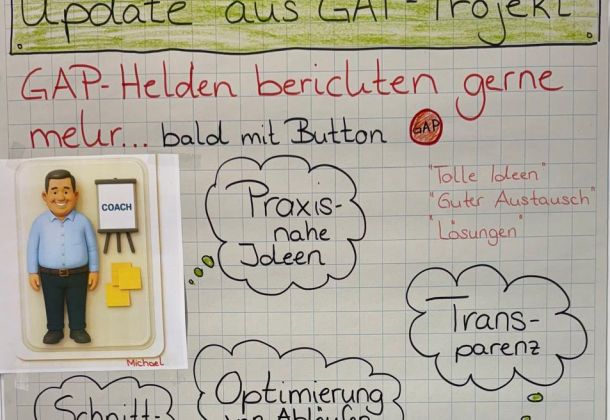 Update aus GAP-Projekt
GAP-Helden berichten gerne
mehr... bald mit Button GAP
"Tolle Ideen"
"Guter Austausch"
"Lösungen"
COACH
Praxis-
nahe
Ideen
Michael
Trans-
parenz
Optimierung
von Abläufen
Schnitt-